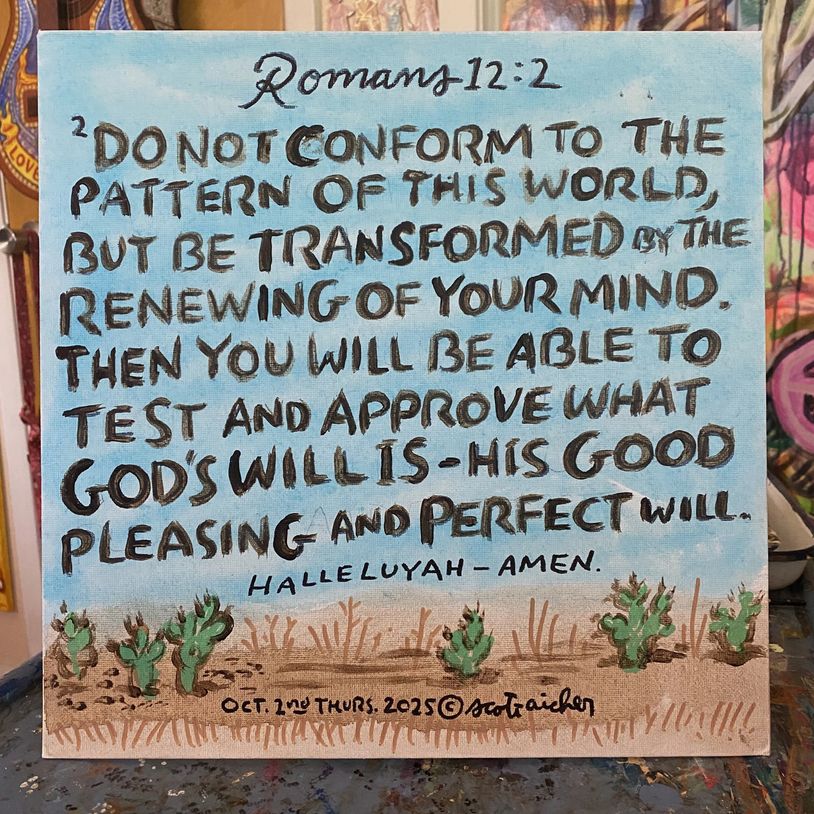 Romans 12:2
²DO NOT CONFORM TO THE
PATTERN OF THIS WORLD,
BUT BE TRANSFORMED BY THE
RENEWING OF YOUR MIND.
THEN YOU WILL BE ABLE TO
TEST AND APPROVE WHAT
GOD'S WILL IS-HIS GOOD
PLEASING AND PERFECT WILL.
HALLELUYAH-AMEN.
OCT. 2nd THURS. 2025 © scott aicher
LOVE